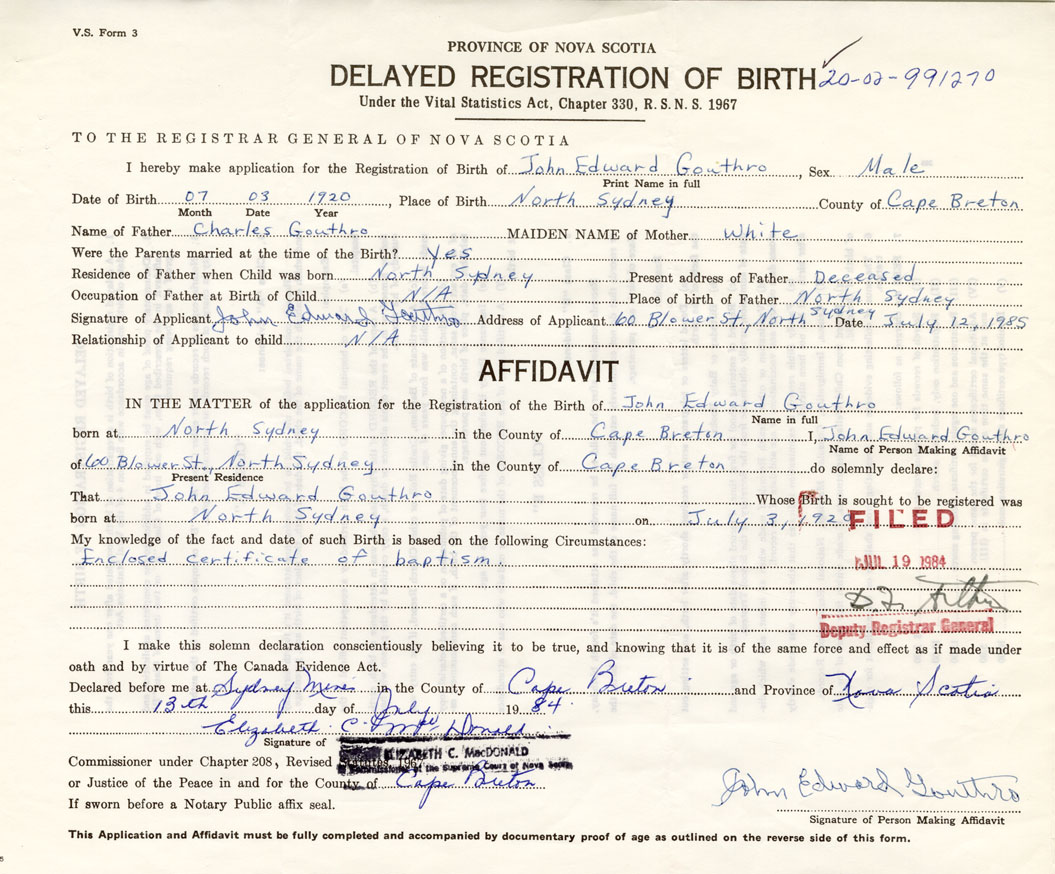 V.S. Form 3
PROVINCE OF NOVA SCOTIA
DELAYED REGISTRATION OF BIRTH 20-02-991270
Under the Vital Statistics Act, Chapter 330, R.S.N.S. 1967
TO THE REGISTRAR GENERAL OF NOVA SCOTIA
I hereby make application for the Registration of Birth of John Edward Gouthro, Sex Male
Print Name in full
Date of Birth 07 03 1920, Place of Birth North Sydney County of Cape Breton
Month Date Year
Name of Father Charles Gouthro MAIDEN NAME of Mother White
Were the Parents married at the time of the Birth? Yes
Residence of Father when Child was born North Sydney Present address of Father Deceased
Occupation of Father at Birth of Child N/A Place of birth of Father North Sydney
Signature of Applicant John Edward Gouthro Address of Applicant 60 Blower St., North Sydney Date July 12, 1985
Relationship of Applicant to child N/A
AFFIDAVIT
IN THE MATTER of the application for the Registration of the Birth of John Edward Gouthro
Name in full
born at North Sydney in the County of Cape Breton I, John Edward Gouthro
Name of Person Making Affidavit
of 60 Blower St., North Sydney in the County of Cape Breton do solemnly declare:
Present Residence
That John Edward Gouthro Whose Birth is sought to be registered was
born at North Sydney on July 3, 1920 FILED
My knowledge of the fact and date of such Birth is based on the following Circumstances:
Enclosed certificate of baptism.
JUL 19 1984
Deputy Registrar General
I make this solemn declaration conscientiously believing it to be true, and knowing that it is of the same force and effect as if made under
oath and by virtue of The Canada Evidence Act.
Declared before me at Sydney Mines in the County of Cape Breton and Province of Nova Scotia
this 13th day of July 1984
Elizabeth C. MacDonald
Signature of
ELIZABETH C. MacDONALD
Commissioner under Chapter 208, Revised Statutes 1967
Commissioner of the Supreme Court of Nova Scotia
or Justice of the Peace in and for the County of Cape Breton
If sworn before a Notary Public affix seal.
John Edward Gouthro
Signature of Person Making Affidavit
This Application and Affidavit must be fully completed and accompanied by documentary proof of age as outlined on the reverse side of this form.